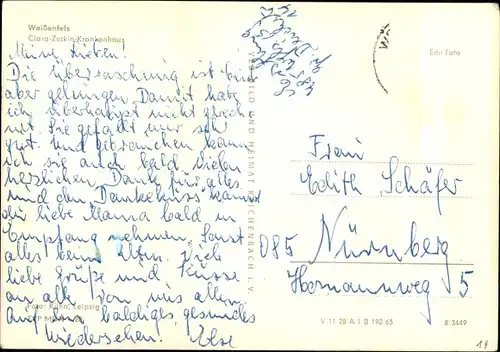 Weißenfels
Clara-Zetkin-Krankenhaus
Meine Lieben!
Die Überraschung ist Euch
aber gelungen. Damit habe
ich überhaupt nicht gerech
net. Sie gefällt mir sehr
gut und gebrauchen kann
ich sie auch bald. Vielen
herzlichen Dank für alles
und den Dankeskuss kannst
du liebe Mama bald in
Empfang nehmen. Sonst
alles beim alten. Viele
liebe Grüße und Küsse
an alle von uns allen
Auf ein baldiges gesundes
Wiedersehen. Else
Foto: Kühn, Leipzig
VERLAG BILD UND HEIMAT REICHENBACH I. V.
Echt Foto
Frau
Edith Schäfer
085 Nürnberg
Hermannweg 5
V 11 28 A 1 B 192 65
8/3449